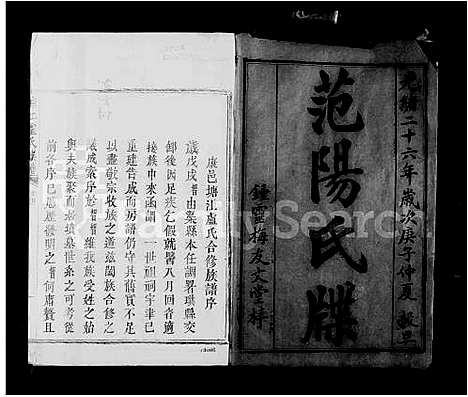 光緒二十六年歲次庚子仲夏 穀旦
范陽氏牒
鍾靈梅友文堂梓
康邑塘江盧氏合修族譜序
歲戊戌督由吳縣本任調署琪縣交
卸後因足疾乞假就醫八月回音適
接族中來函謂一世祖祠宇業已
重建告成而房譜仍守其舊實不足
以盡敬宗收族之道茲闔族合修之
議成索序於督督維我族受姓之始
與夫族聚而居墳墓世系之可考從
前各序已歷歷發明之督何庸贅且
FamilySearch